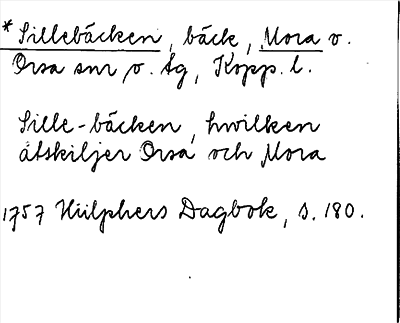 * Sillebäcken, bäck, Mora o.
Orsa snr, o. Lg, Kopp. l.
Sille-bäcken, hwilken
åtskiljer Orsa och Mora
1757 Hülphers Dagbok, s. 180.